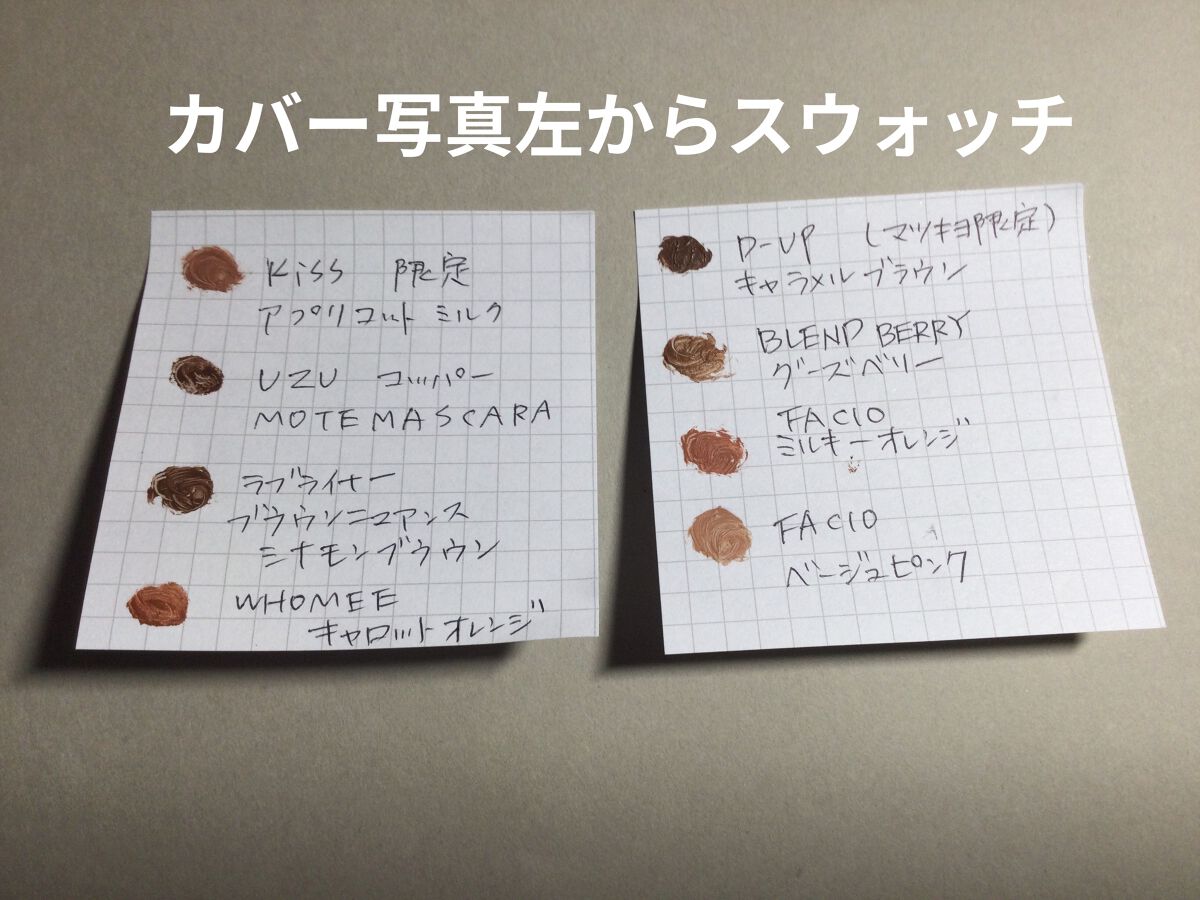 カバー写真左からスウォッチ
Kiss 限定
アプリコット ミルク
UZU コッパー
MOTE MASCARA
ラブライナー
ブラウンニュアンス
シナモンブラウン
WHOMEE
キャロットオレンジ
D-UP (マツキヨ限定)
キャラメルブラウン
BLEND BERRY
グーズベリー
FACIO
ミルキーオレンジ
FACIO
ベージュピンク